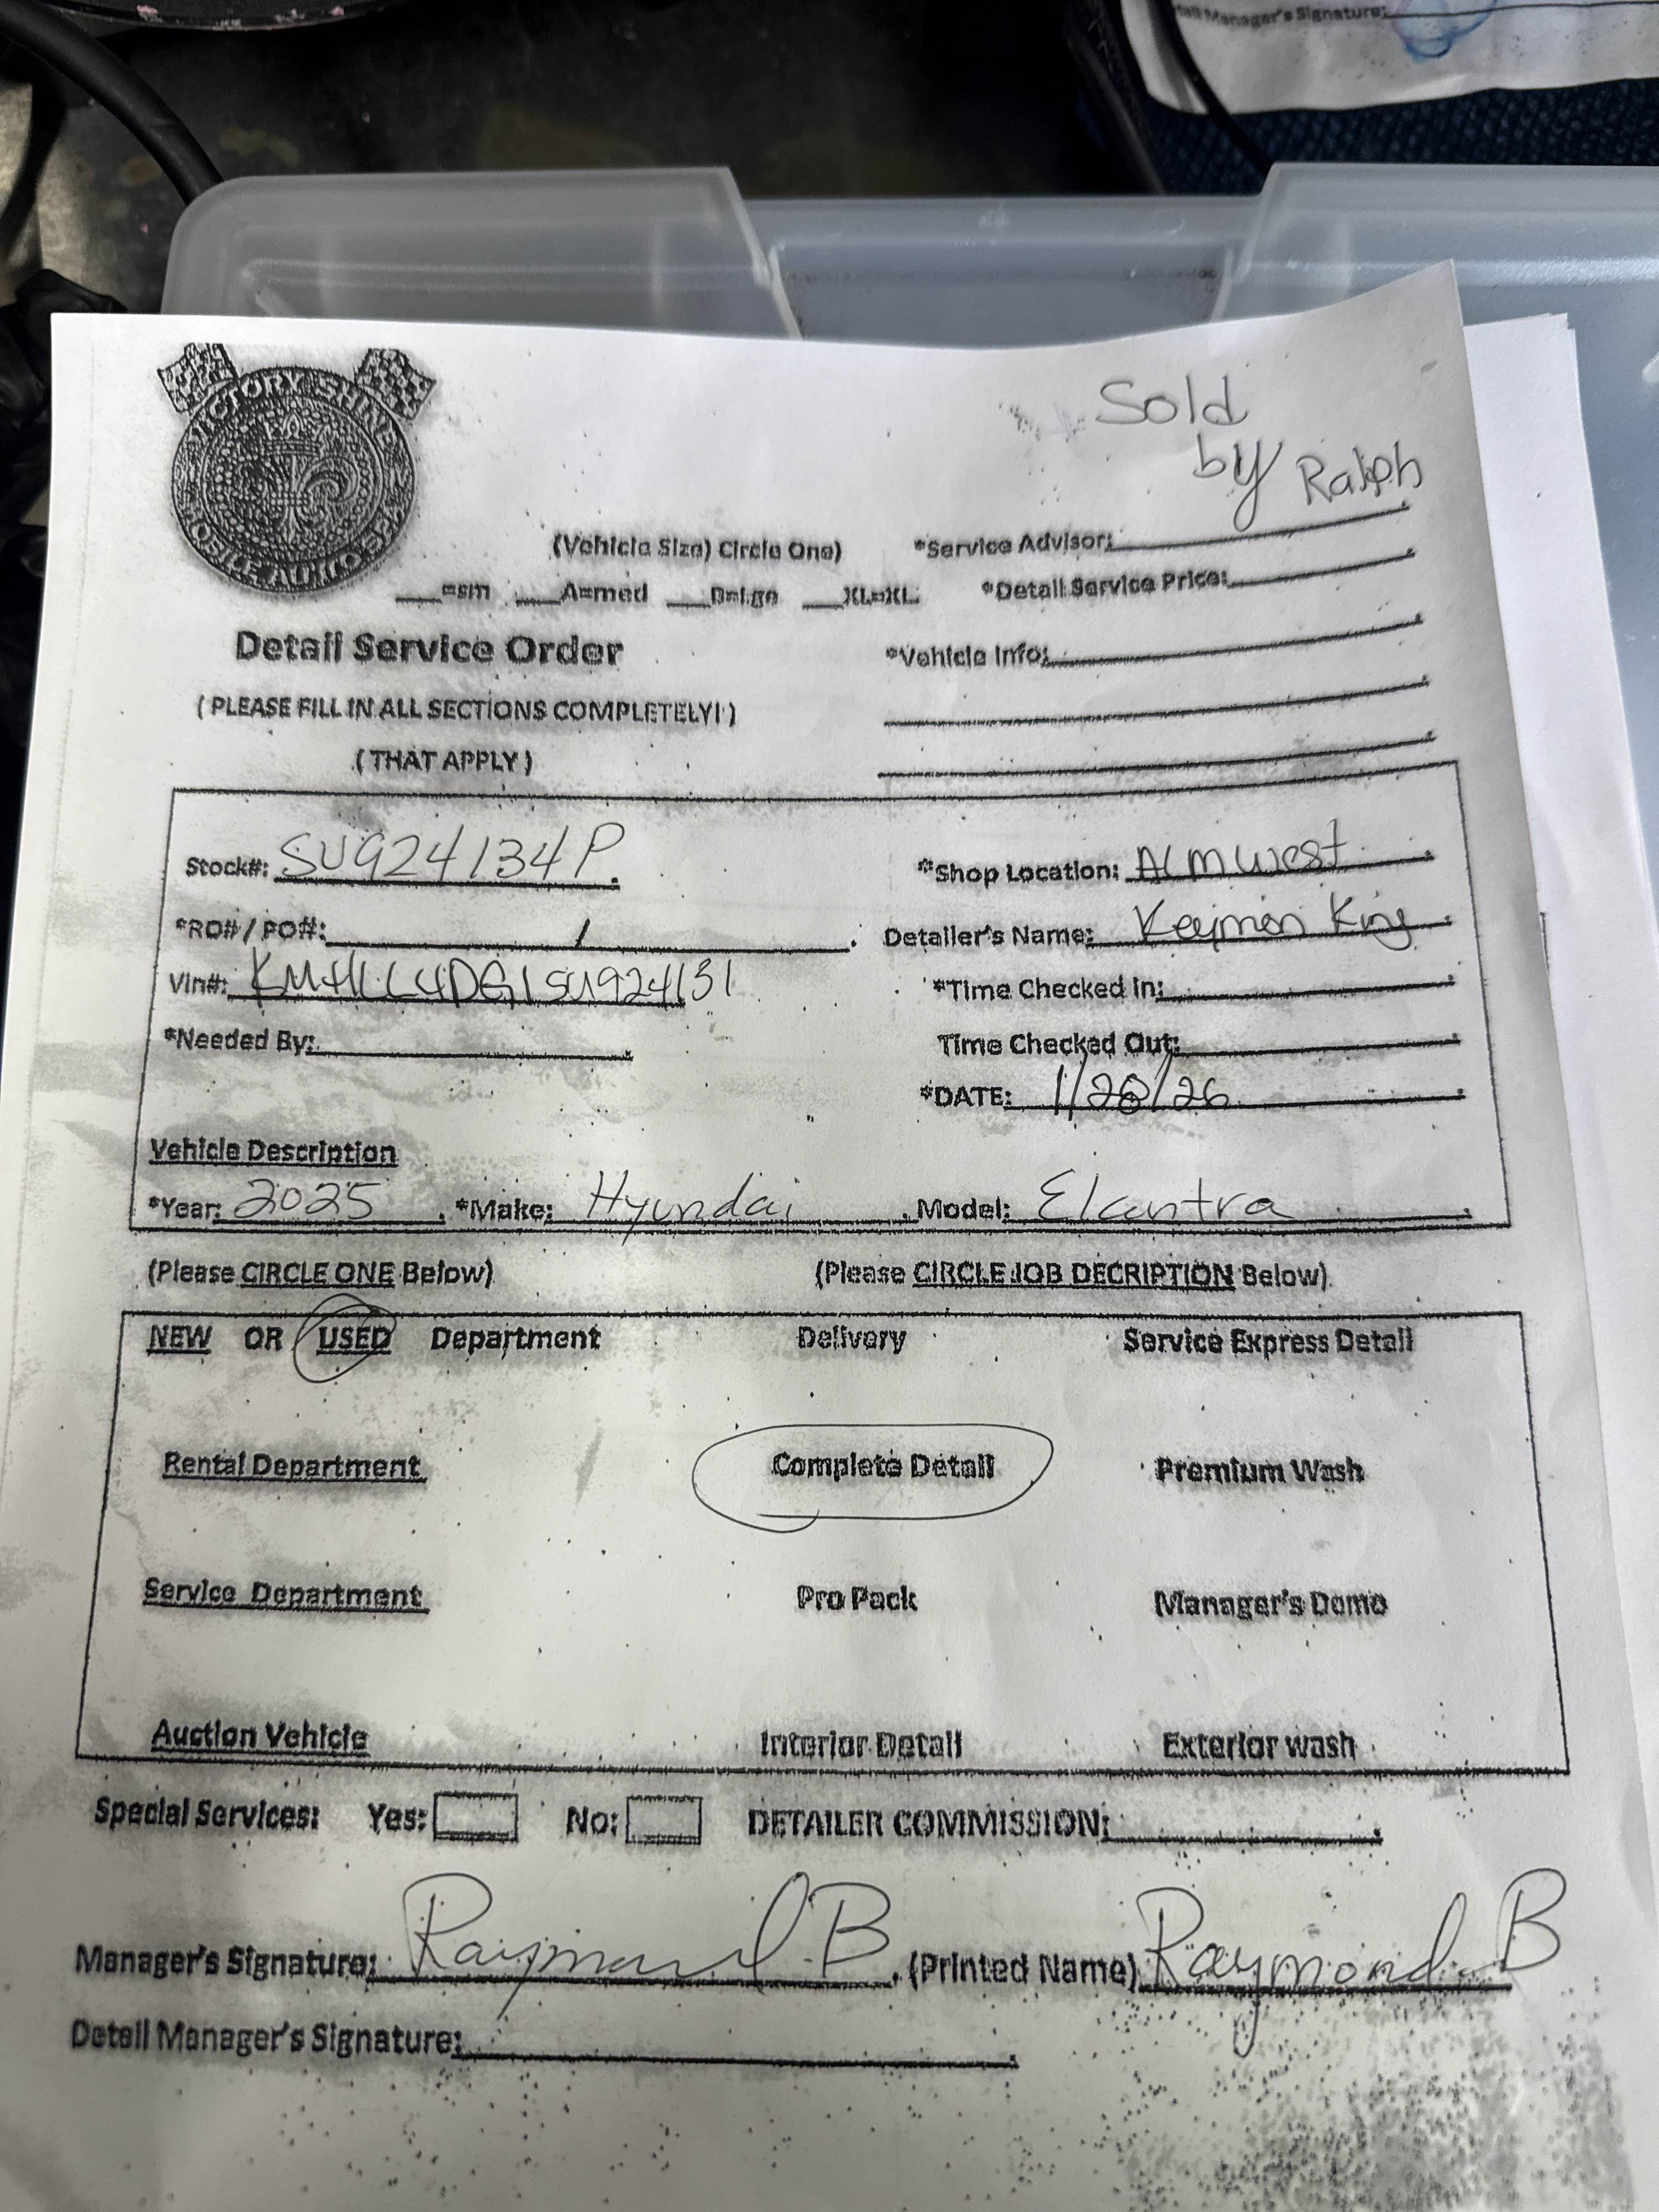 Detail Manager's Signature:
VICTORY SHINE
MOBILE AUTO
Sold
by Ralph
(Vehicle Size) Circle One) *Service Advisor:
=sm A=med B=Lge XL=XL *Detail Service Price:
Detail Service Order *Vehicle Info:
( PLEASE FILL IN ALL SECTIONS COMPLETELY! )
( THAT APPLY )
Stock#: SU924134P *Shop Location: ALM West
*RO# / PO#: / Detailer's Name: King
Vin#: *Time Checked In:
*Needed By: Time Checked Out:
*DATE: 1/28/26
Vehicle Description
*Year: 2025 *Make: Hyundai Model: Elantra
(Please CIRCLE ONE Below) (Please CIRCLE JOB DECRIPTION Below)
NEW OR USED Department Delivery Service Express Detail
Rental Department Complete Detail Premium Wash
Service Department Pro Pack Manager's Demo
Auction Vehicle Interior Detail Exterior wash
Special Services: Yes: No: DETAILER COMMISSION:
Manager's Signature: Raymond B (Printed Name) Raymond B
Detail Manager's Signature: